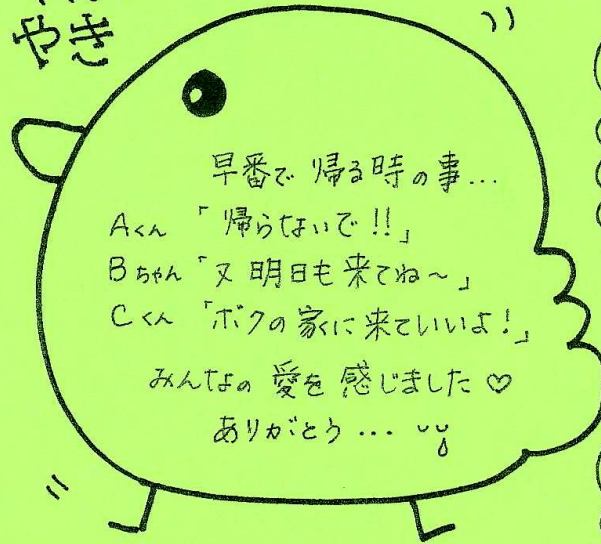 やき
早番で 帰る時の事...
Aくん 「帰らないで!!」
Bちゃん 「又 明日も 来てね～」
Cくん 「ボクの家に来ていいよ!」
みんなの 愛を 感じました♡
ありがとう...